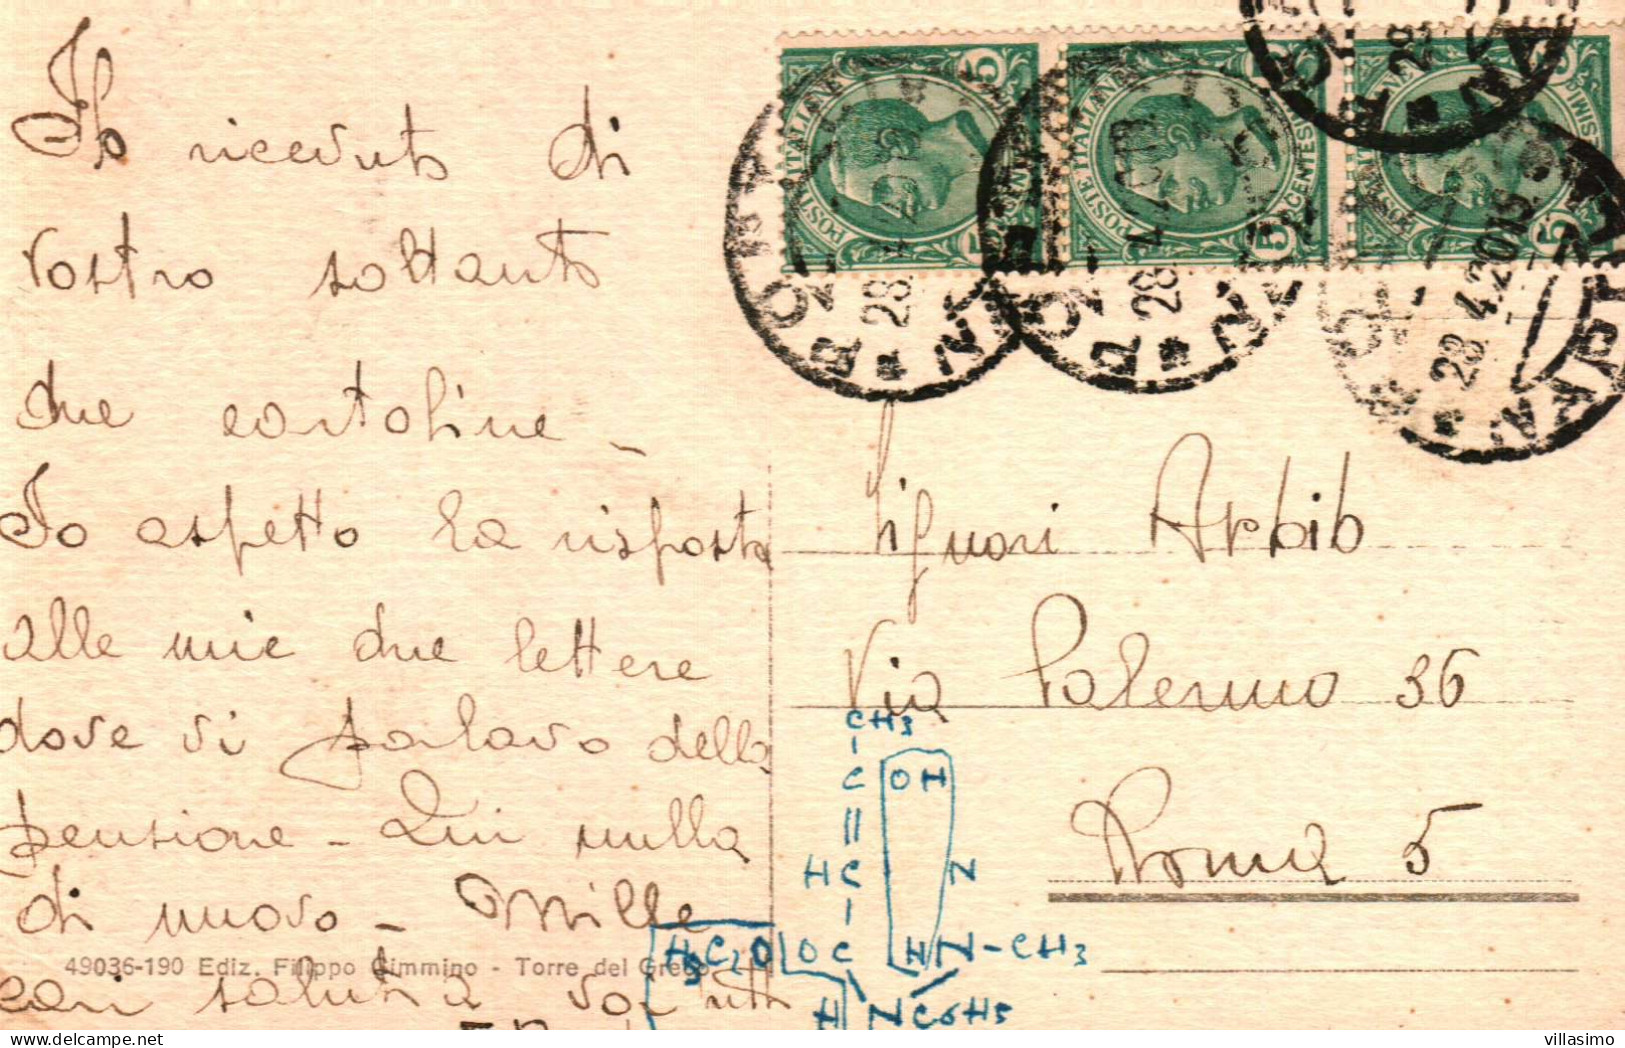 Ho ricevuto di
vostro soltanto
due cartoline -
Io aspetto la risposta
alle mie due lettere
dove vi parlavo della
pensione - Qui nulla
di nuovo - Mille
cari saluti a voi tutti
49036-190 Ediz. Filippo Cimmino - Torre del Greco
POSTE ITALIANE
CENTESIMI 5
POSTE ITALIANE
CENTESIMI 5
POSTE ITALIANE
CENTESIMI 5
NAPOLI
28.4.20 19
Signori Arbib
Via Palermo 36
Roma 5
CH3
C OH
HC N
H5C2O OC HN-CH3
H NC6H5
villasimo